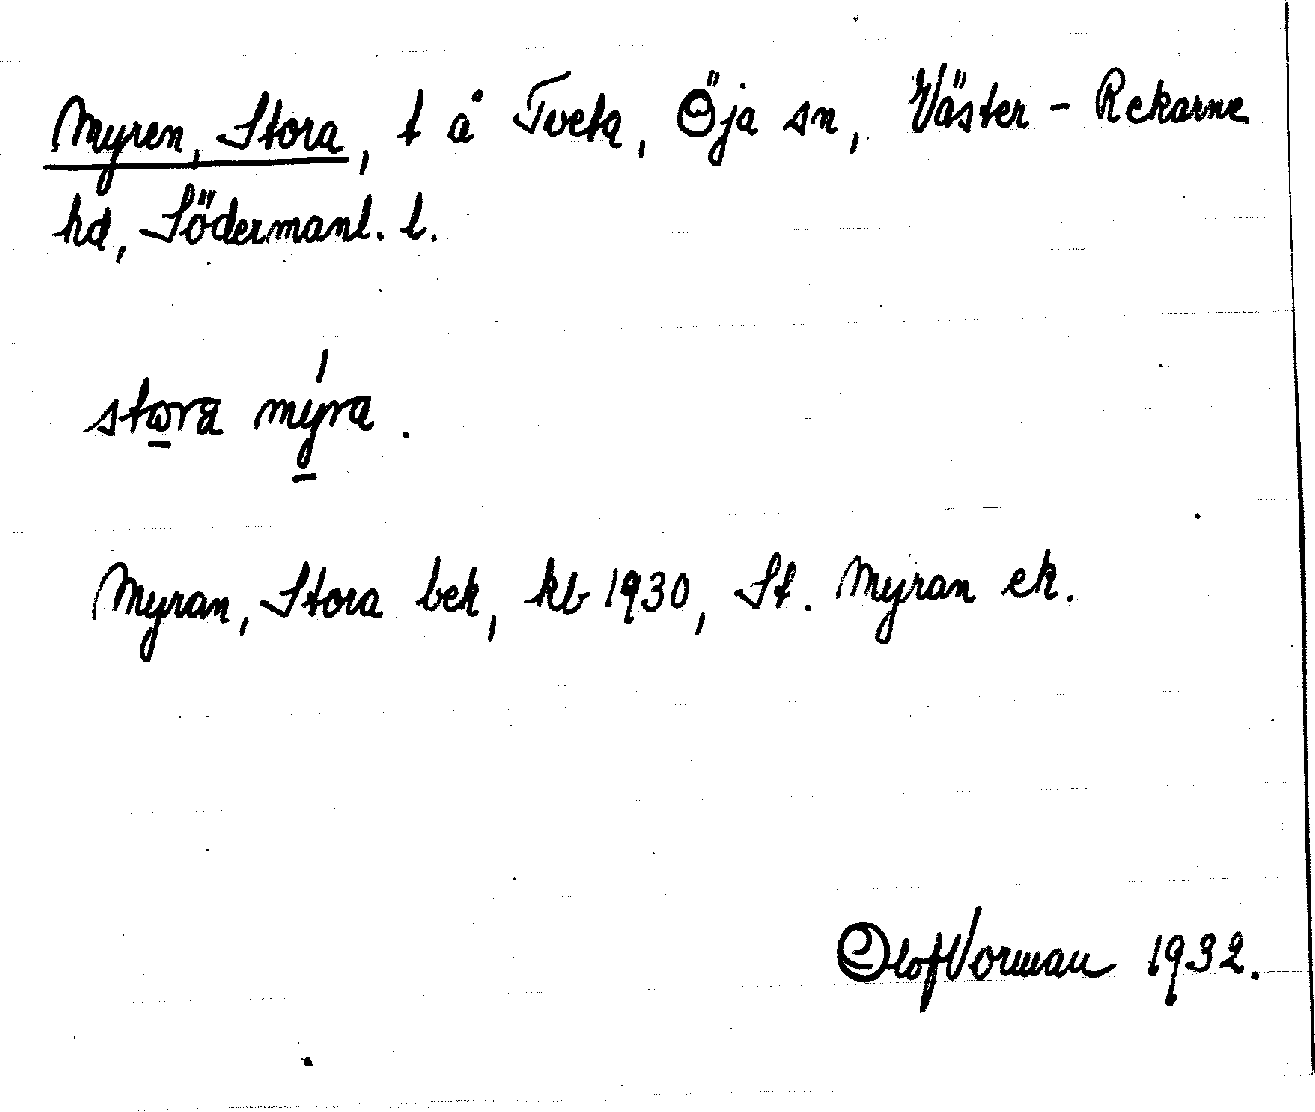 Myren, Stora, t å Tveta, Öja sn, Väster-Rekarne
hd, Södermanl. l.
stora mýra.
Myran, Stora bek, kb 1930, St. Myran ek.
Olof Vorman 1932.